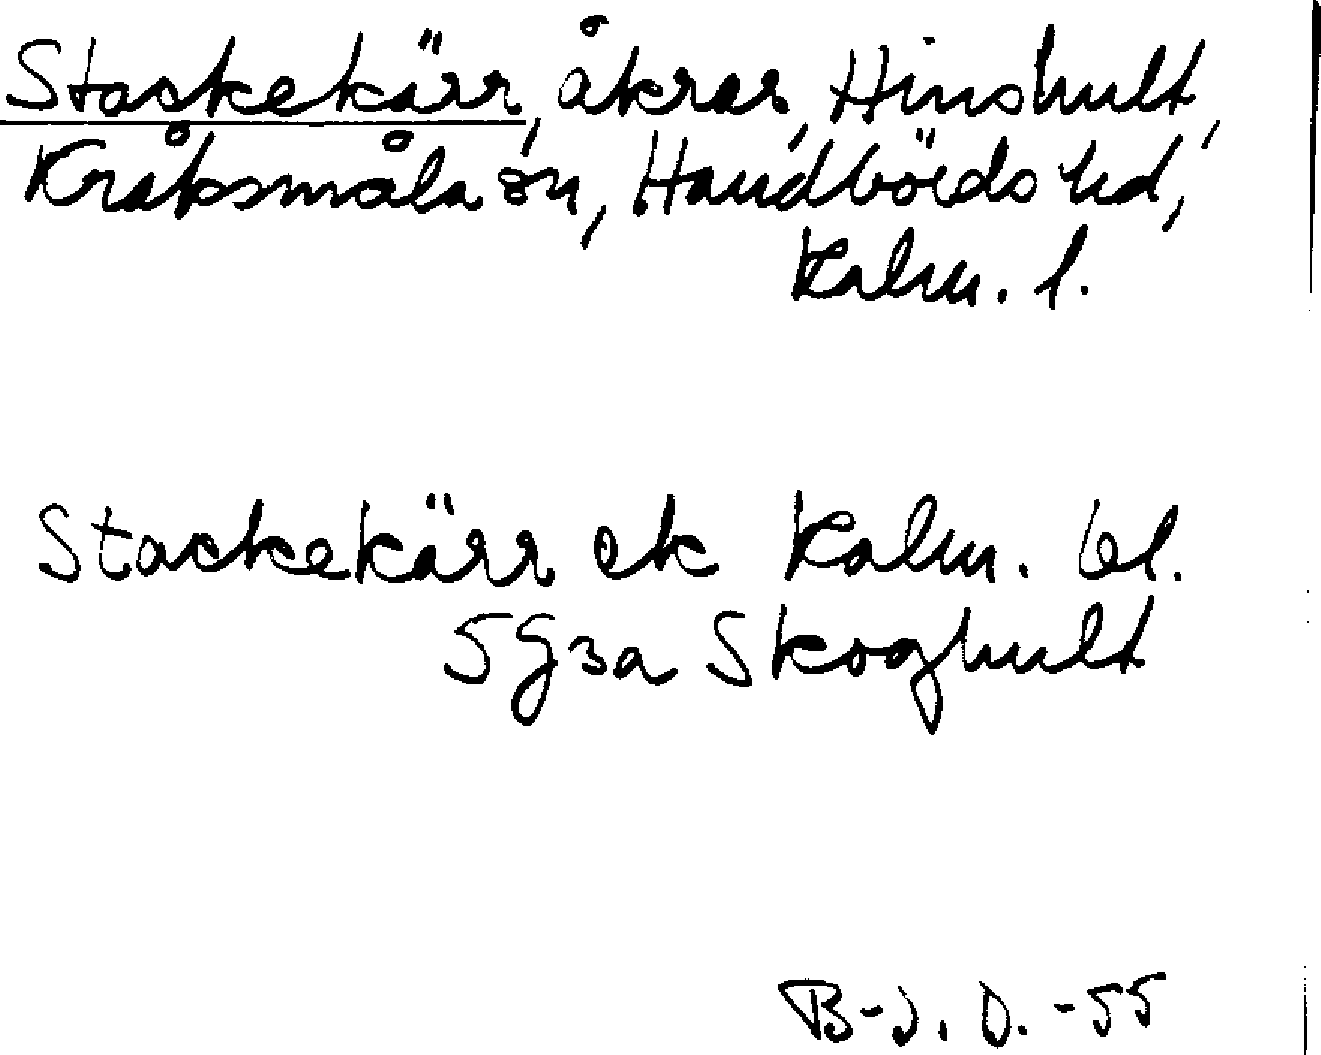 Stackekärr, åkrar, Hinshult,
Kråksmåla sn, Handbörds hd,
Kalm. l.
Stackekärr ek Kalm. bl.
5 G 3 a Skoghult
B-J. O. -55